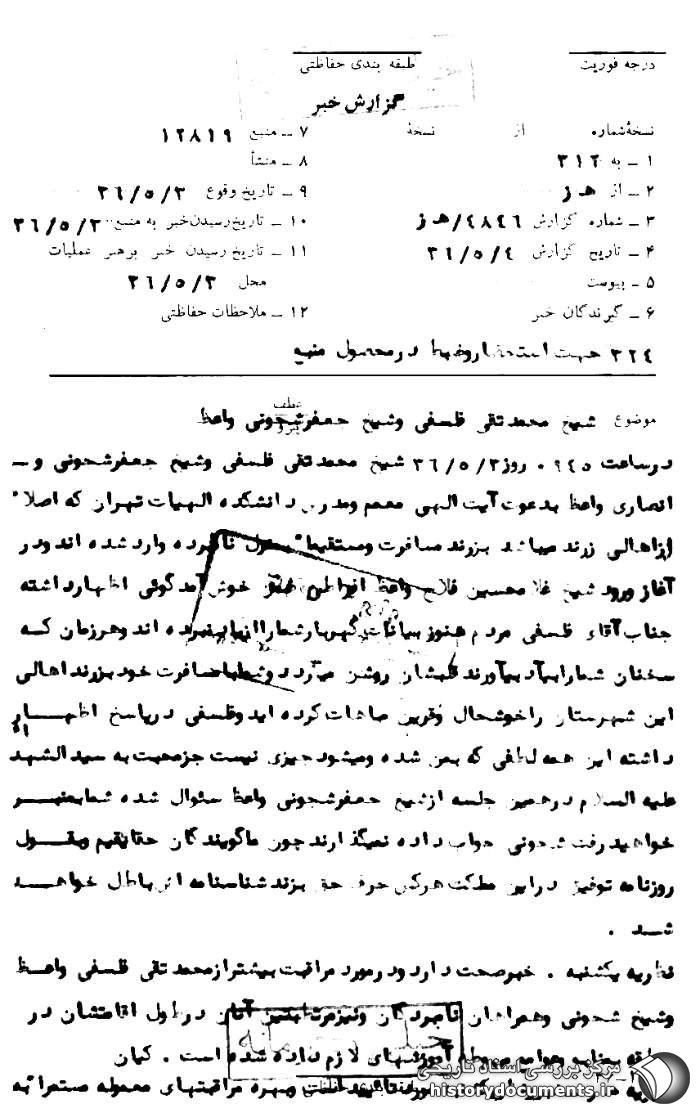 درجه فوریت
طبقه بندی حفاظتی
گزارش خبر
نسخهٔ شماره از نسخهٔ
۱ ـ به ۳۱۲
۲ ـ از هـ ز
۳ ـ شماره گزارش ۴۸۴۶/هـ ز
۴ ـ تاریخ گزارش ۳۶/۵/۴
۵ ـ پیوست
۶ ـ گیرندگان خبر
۷ ـ منبع ۱۲۸۱۹
۸ ـ منشأ
۹ ـ تاریخ وقوع ۳۶/۵/۳
۱۰ ـ تاریخ رسیدن خبر به منبع ۳۶/۵/۳
۱۱ ـ تاریخ رسیدن خبر برهبر عملیات
محل ۳۶/۵/۳
۱۲ ـ ملاحظات حفاظتی
۳۲۴ جهت استحضار وضبط در محصول منبع
عطف
پیرو
موضوع شیخ محمد تقی فلسفی وشیخ جعفر شجونی واعظ
در ساعت ۰۹۴۵ روز ۳۶/۵/۳ شیخ محمد تقی فلسفی وشیخ جعفر شجونی و ـ
انصاری واعظ بدعوت آیت الهی معمم ومدرس دانشکده الهیات تهران که اصلا"
ازاهالی زرند میباشد بزرند مسافرت ومستقیما" نامبرده وارد شده اند ودر
آغاز ورود شیخ غلامحسین فلاح واعظ افراطی خوش آمدگوئی اظهار داشته
جناب آقای فلسفی مردم هنوز بیانات گهربار شمارا ازیاد نبرده اند وهرزمان که
سخنان شمارا بیاد میآورند قلبشان روشن میگردد وشما با مسافرت خود بزرند اهالی
این شهرستان را خوشحال وقرین مباهات کرده اید وفلسفی در پاسخ اظهار
داشته این همه لطفی که بمن شده ومیشود چیزی نیست جز محبت به سید الشهدا
علیه السلام درهمین جلسه از شیخ جعفر شجونی واعظ سئوال شده شما بمنبر
خواهید رفت شجونی جواب داده نمیگذارند چون ما گویندگان حقایقیم وبقول
روزنامه توفیق در این مملکت هرکس حرف حق بزند شناسنامه اش باطل خواهد
شد .
نظریه یکشنبه . خبر صحت دارد در مورد مراقبت بیشتر از محمد تقی فلسفی واعظ
وشیخ شجونی وهمراهان نامبردگان ونیز آنان در طول اقامتشان در
آموزشهای لازم داده شده است . کیان
مورد تائید است وبهره مراقبتهای معموله مستمرا" به
مرکز بررسی اسناد تاریخی
historydocuments.ir